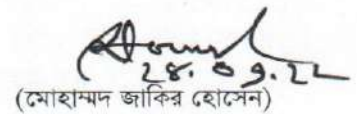 28.09.22
(মোহাম্মদ জাকির হোসেন)